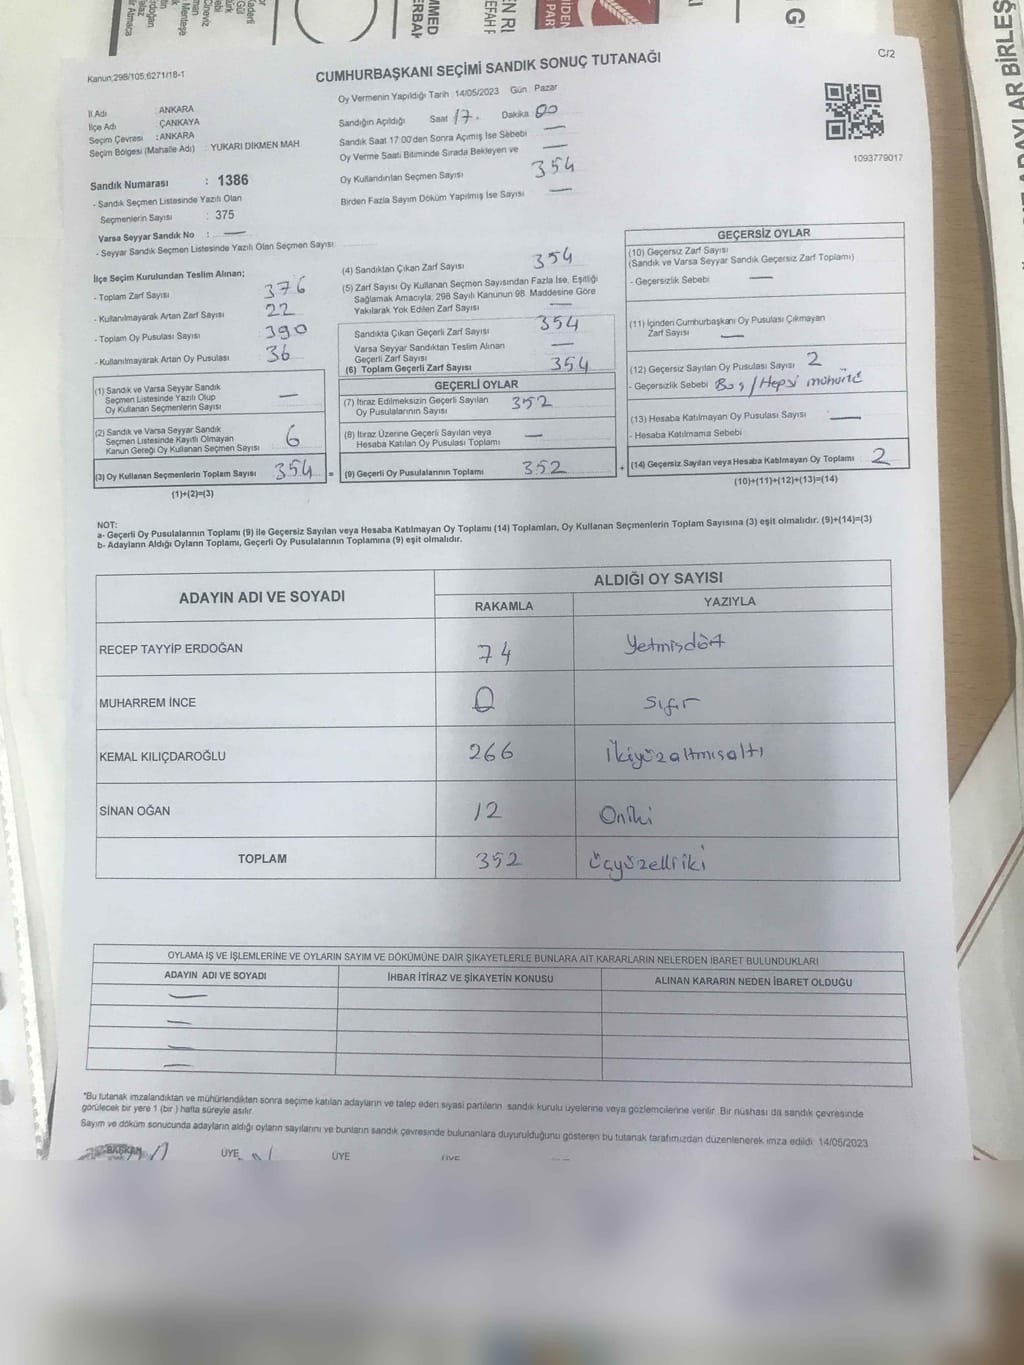 C/2
Kanun;298/105;6271/18-1
CUMHURBAŞKANI SEÇİMİ SANDIK SONUÇ TUTANAĞI
İl Adı : ANKARA
İlçe Adı : ÇANKAYA
Seçim Çevresi : ANKARA
Seçim Bölgesi (Mahalle Adı) : YUKARI DİKMEN MAH.
Sandık Numarası : 1386
- Sandık Seçmen Listesinde Yazılı Olan
Seçmenlerin Sayısı : 375
Varsa Seyyar Sandık No : —
- Seyyar Sandık Seçmen Listesinde Yazılı Olan Seçmen Sayısı
Oy Vermenin Yapıldığı Tarih : 14/05/2023 Gün : Pazar
Sandığın Açıldığı Saat 17. Dakika 00
Sandık Saat 17:00'den Sonra Açımış İse Sebebi —
Oy Verme Saati Bitiminde Sırada Bekleyen ve —
Oy Kullandırılan Seçmen Sayısı 354
Birden Fazla Sayım Döküm Yapılmış İse Sayısı —
1093779017
İlçe Seçim Kurulundan Teslim Alınan;
- Toplam Zarf Sayısı 376
- Kullanılmayarak Artan Zarf Sayısı 22
- Toplam Oy Pusulası Sayısı 390
- Kullanılmayarak Artan Oy Pusulası 36
(1) Sandık ve Varsa Seyyar Sandık
Seçmen Listesinde Yazılı Olup
Oy Kullanan Seçmenlerin Sayısı —
(2) Sandık ve Varsa Seyyar Sandık
Seçmen Listesinde Kayıtlı Olmayan
Kanun Gereği Oy Kullanan Seçmen Sayısı 6
(3) Oy Kullanan Seçmenlerin Toplam Sayısı 354 =
(1)+(2)=(3)
(4) Sandıktan Çıkan Zarf Sayısı 354
(5) Zarf Sayısı Oy Kullanan Seçmen Sayısından Fazla İse, Eşitliği
Sağlamak Amacıyla, 298 Sayılı Kanunun 98. Maddesine Göre
Yakılarak Yok Edilen Zarf Sayısı —
Sandıkta Çıkan Geçerli Zarf Sayısı 354
Varsa Seyyar Sandıktan Teslim Alınan
Geçerli Zarf Sayısı —
(6) Toplam Geçerli Zarf Sayısı 354
GEÇERLİ OYLAR
(7) İtiraz Edilmeksizin Geçerli Sayılan
Oy Pusulalarının Sayısı 352
(8) İtiraz Üzerine Geçerli Sayılan veya
Hesaba Katılan Oy Pusulası Toplamı —
(9) Geçerli Oy Pusulalarının Toplamı 352 +
GEÇERSİZ OYLAR
(10) Geçersiz Zarf Sayısı
(Sandık ve Varsa Seyyar Sandık Geçersiz Zarf Toplamı)
- Geçersizlik Sebebi —
(11) İçinden Cumhurbaşkanı Oy Pusulası Çıkmayan
Zarf Sayısı —
(12) Geçersiz Sayılan Oy Pusulası Sayısı 2
- Geçersizlik Sebebi Boş / Hepsi mühürlü
(13) Hesaba Katılmayan Oy Pusulası Sayısı —
- Hesaba Katılmama Sebebi
(14) Geçersiz Sayılan veya Hesaba Katılmayan Oy Toplamı 2
(10)+(11)+(12)+(13)=(14)
NOT:
a- Geçerli Oy Pusulalarının Toplamı (9) ile Geçersiz Sayılan veya Hesaba Katılmayan Oy Toplamı (14) Toplamları, Oy Kullanan Seçmenlerin Toplam Sayısına (3) eşit olmalıdır. (9)+(14)=(3)
b- Adayların Aldığı Oyların Toplamı, Geçerli Oy Pusulalarının Toplamına (9) eşit olmalıdır.
ADAYIN ADI VE SOYADI
ALDIĞI OY SAYISI
RAKAMLA YAZIYLA
RECEP TAYYİP ERDOĞAN 74 Yetmişdört
MUHARREM İNCE 0 Sıfır
KEMAL KILIÇDAROĞLU 266 İkiyüzaltmışaltı
SİNAN OĞAN 12 Oniki
TOPLAM 352 Üçyüzelliiki
OYLAMA İŞ VE İŞLEMLERİNE VE OYLARIN SAYIM VE DÖKÜMÜNE DAİR ŞİKAYETLERLE BUNLARA AİT KARARLARIN NELERDEN İBARET BULUNDUKLARI
ADAYIN ADI VE SOYADI İHBAR İTİRAZ VE ŞİKAYETİN KONUSU ALINAN KARARIN NEDEN İBARET OLDUĞU
—
—
—
—
*Bu tutanak imzalandıktan ve mühürlendikten sonra seçime katılan adayların ve talep eden siyasi partilerin, sandık kurulu üyelerine veya gözlemcilerine verilir. Bir nüshası da sandık çevresinde
görülecek bir yere 1 (bir ) hafta süreyle asılır.
Sayım ve döküm sonucunda adayların aldığı oyların sayılarını ve bunların sandık çevresinde bulunanlara duyurulduğunu gösteren bu tutanak tarafımızdan düzenlenerek imza edildi. 14/05/2023
BAŞKAN ÜYE ÜYE ÜYE